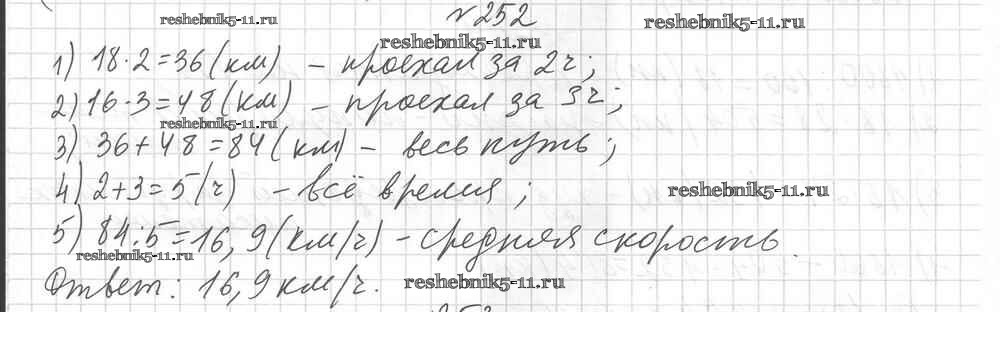 №252
reshebnik5-11.ru
reshebnik5-11.ru
reshebnik5-11.ru
1) 18·2=36(км) – проехал за 2ч;
2) 16·3=48(км) – проехал за 3ч;
reshebnik5-11.ru
3) 36+48=84(км) – весь путь;
4) 2+3=5(ч) – всё время;
reshebnik5-11.ru
5) 84:5=16,9(км/ч) – средняя скорость.
reshebnik5-11.ru
Ответ: 16,9 км/ч.
reshebnik5-11.ru